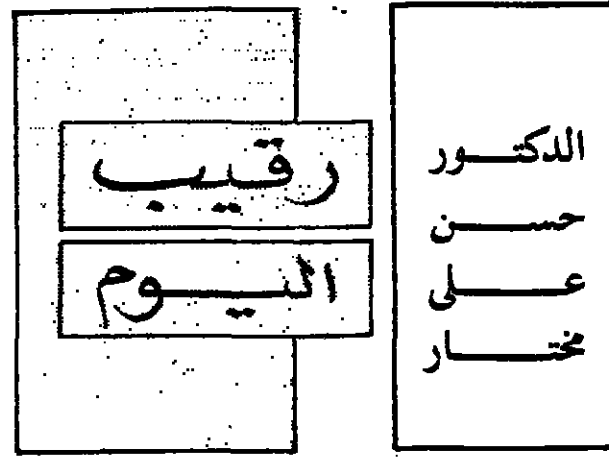 الدكتور
حسن
على
مختار
رقيب
اليوم